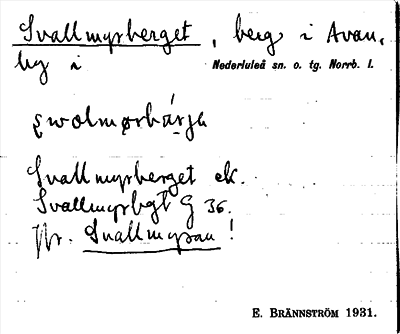 Svallmyrberget, berg i Avan,
by i Nederluleå sn. o. tg. Norrb. l.
Svallmyrberget ek.
Svallmyrbgt G 36.
Jfr. Svallmyran!
E. BRÄNNSTRÖM 1931.